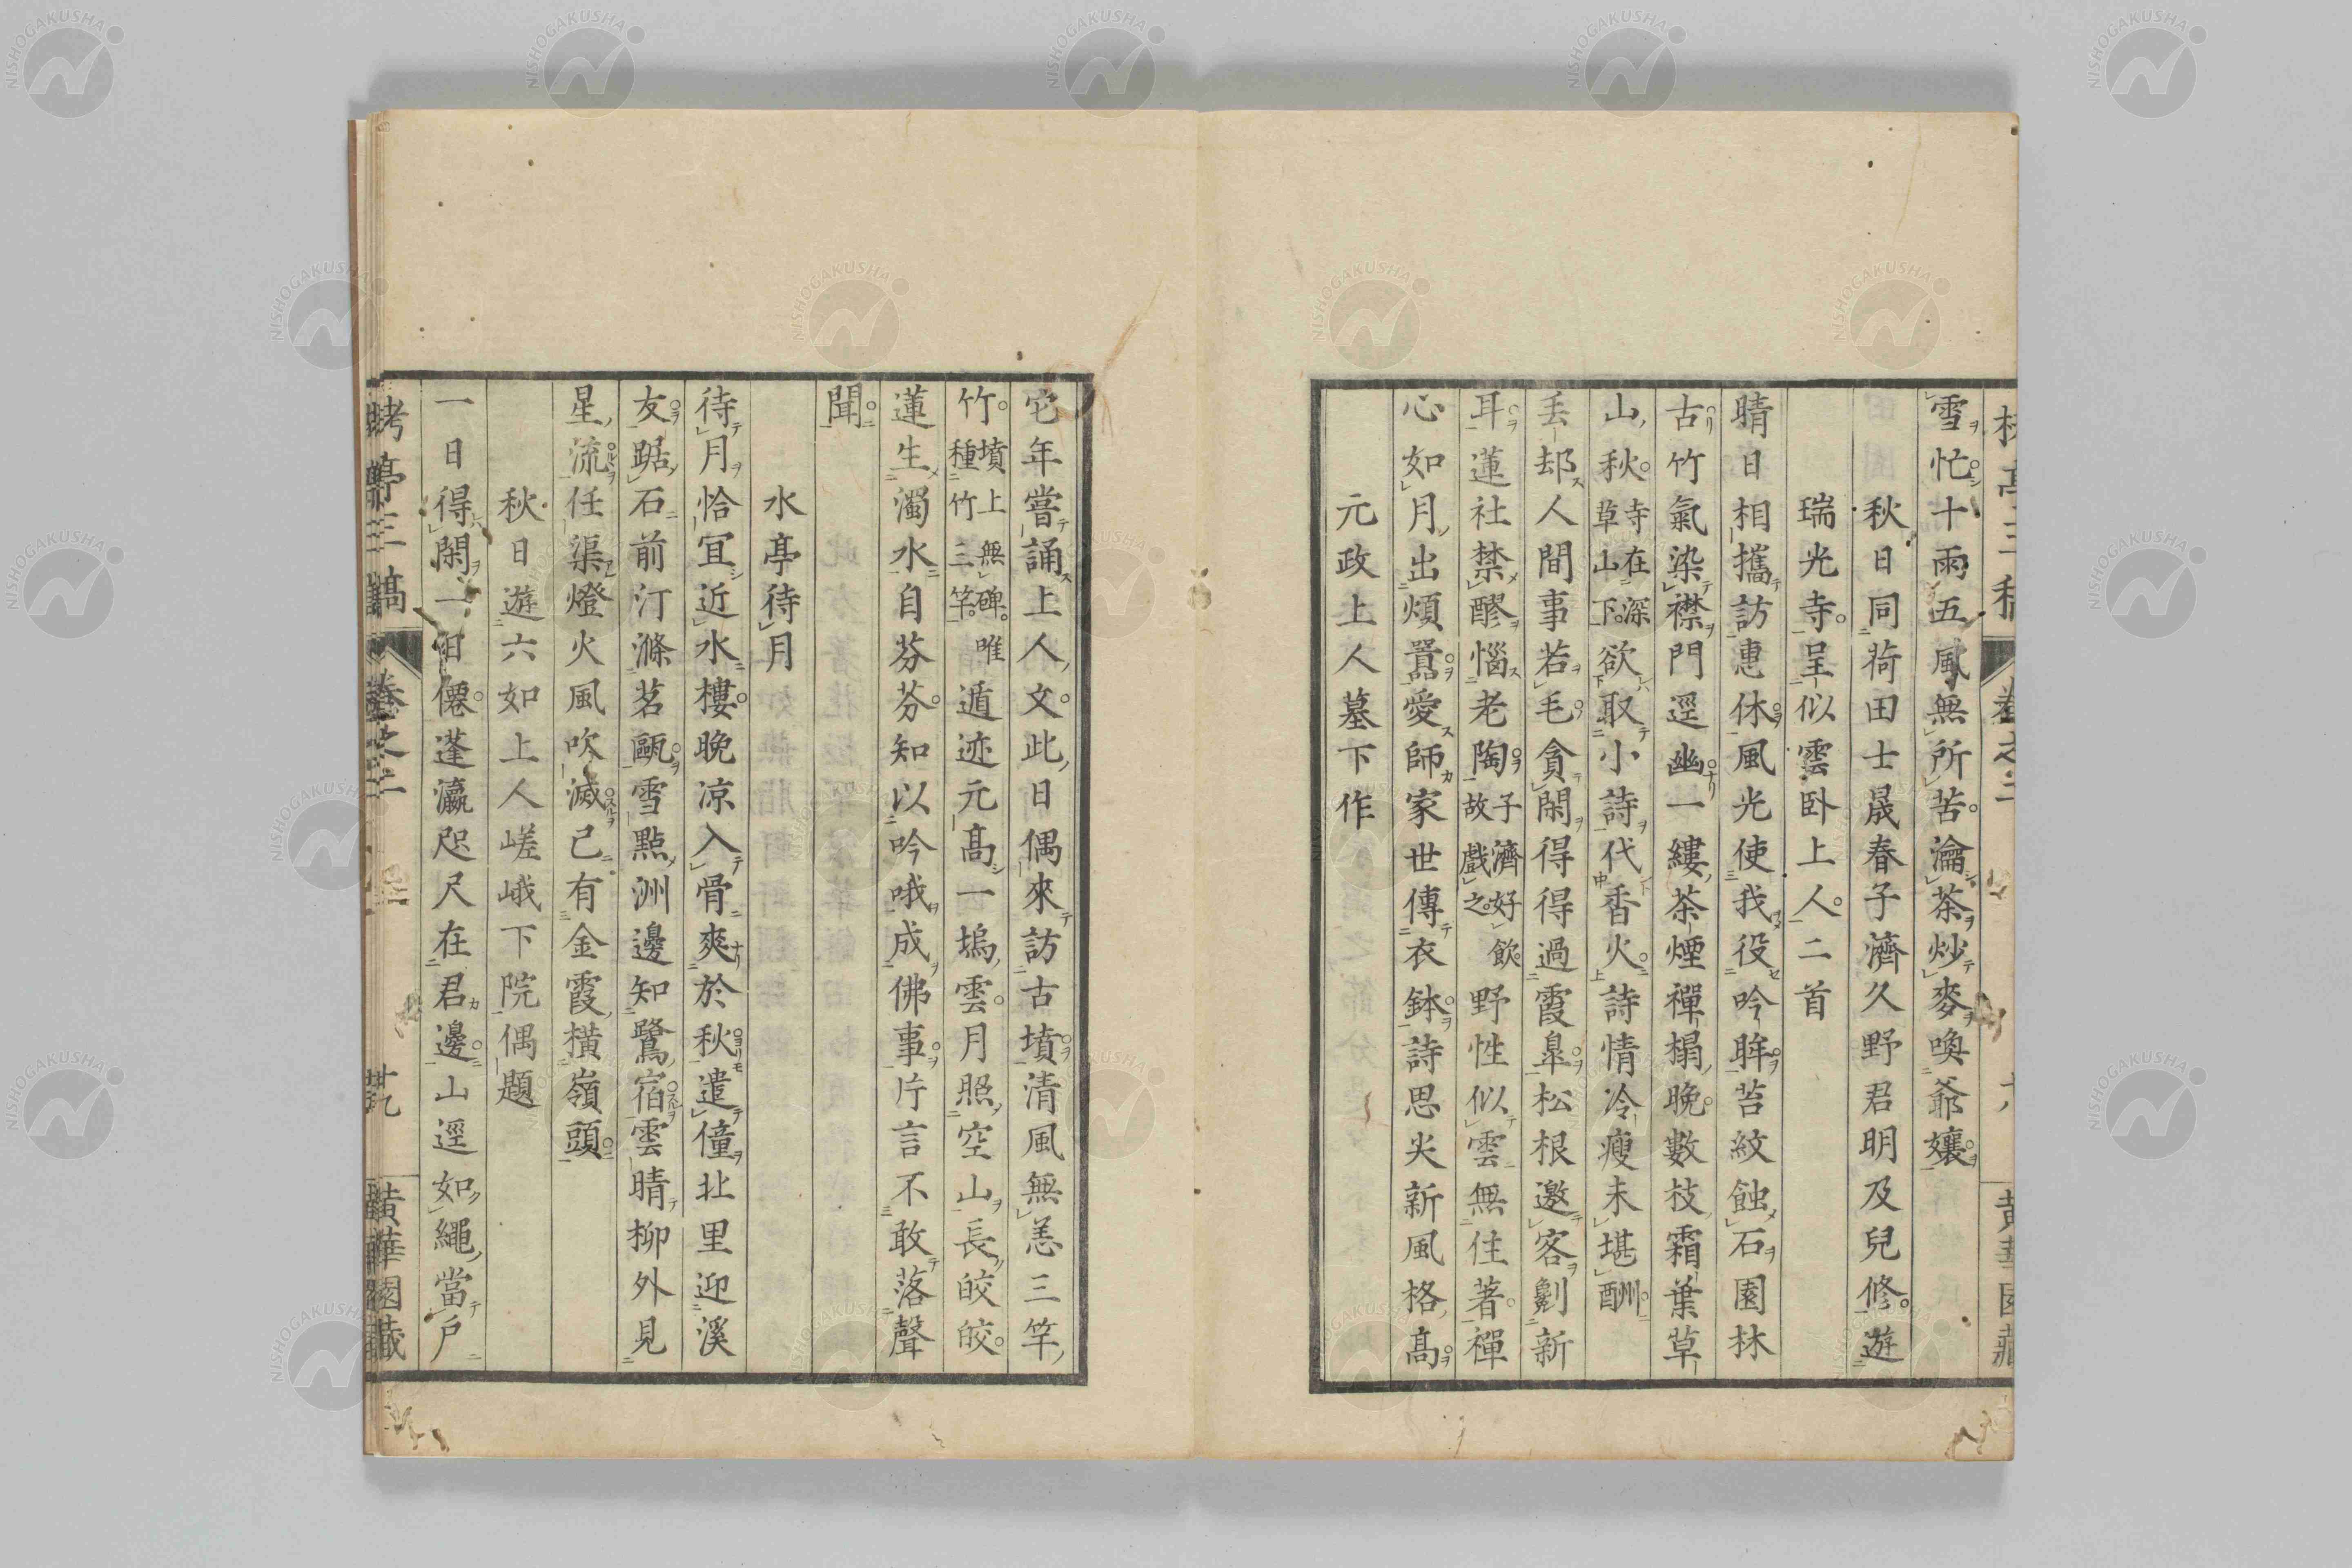 雪忙十雨五風無所苦瀹茶炒麥喚爺孃
秋日同荷田士晟春子濟久野君明及兒修遊
瑞光寺呈似雲臥上人二首
晴日相攜訪惠休風光使我役吟眸苔紋蝕石園林
古竹氣染襟門逕幽一縷茶煙禪榻晚數枝霜葉草
山秋寺在深草山下欲取小詩代香火詩情冷瘦未堪酬
丟却人間事若毛貪閑得得過霞皐松根邀客劖新
耳蓮社禁醪惱老陶子濟好飲故戲之野性似雲無住著禪
心如月出煩囂愛師家世傳衣鉢詩思尖新風格高
元政上人墓下作
它年嘗誦上人文此日偶來訪古墳清風無恙三竿
竹墳上無碑唯種竹三竿遁迹元高一塢雲月照空山長皎皎
蓮生濁水自芬芬知以吟哦成佛事片言不敢落聲
聞
水亭待月
待月恰宜近水樓晚凉入骨爽於秋遣僮北里迎溪
友踞石前汀滌茗甌雪點洲邊知鷺宿雲晴柳外見
星流任渠燈火風吹滅已有金霞橫嶺頭
秋日遊六如上人嵯峨下院偶題
一日得閑一日僊蓬瀛咫尺在君邊山逕如繩當戶
卷之二
廿九
黃華園藏
NISHOGAKUSHA